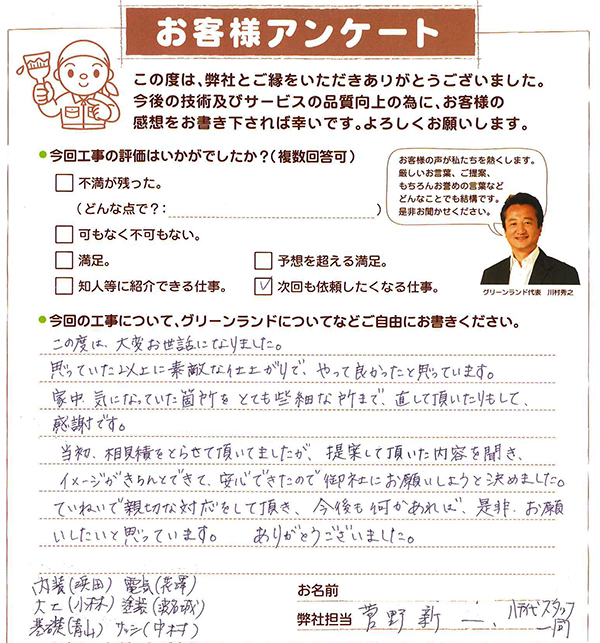 お客様アンケート
この度は、弊社とご縁をいただきありがとうございました。
今後の技術及びサービスの品質向上の為に、お客様の
感想をお書き下されば幸いです。よろしくお願いします。
●今回工事の評価はいかがでしたか?(複数回答可)
□不満が残った。
(どんな点で?: )
□可もなく不可もない。
□満足。 □予想を超える満足。
□知人等に紹介できる仕事。 ☑次回も依頼したくなる仕事。
お客様の声が私たちを熱くします。
厳しいお言葉、ご提案、
もちろんお誉めの言葉など
どんなことでも結構です。
是非お聞かせください。
グリーンランド代表 川村秀之
●今回の工事について、グリーンランドについてなどご自由にお書きください。
この度は、大変お世話になりました。
思っていた以上に素敵な仕上がりで、やって良かったと思っています。
家中、気になっていた箇所をとても些細な所まで、直して頂いたりもして、
感謝です。
当初、相見積をとらせて頂いてましたが、提案して頂いた内容を聞き、
イメージがきちんとできて、安心できたので御社にお願いしようと決めました。
ていねいで親切な対応をして頂き、今後も何かあれば、是非、お願
いしたいと思っています。 ありがとうございました。
内装(浜田) 電気()
大工(小林) 塗装()
基礎(青山) サッシ(中村)
お名前
弊社担当 菅野 新 スタッフ
一同